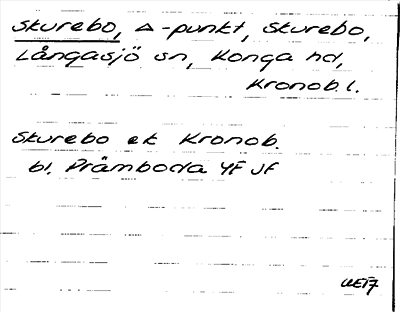 Skurebo, △-punkt, Skurebo,
Långasjö sn, Konga hd,
Kronob. l.
Skurebo ek Kronob.
bl. Pråmboda 4F JF